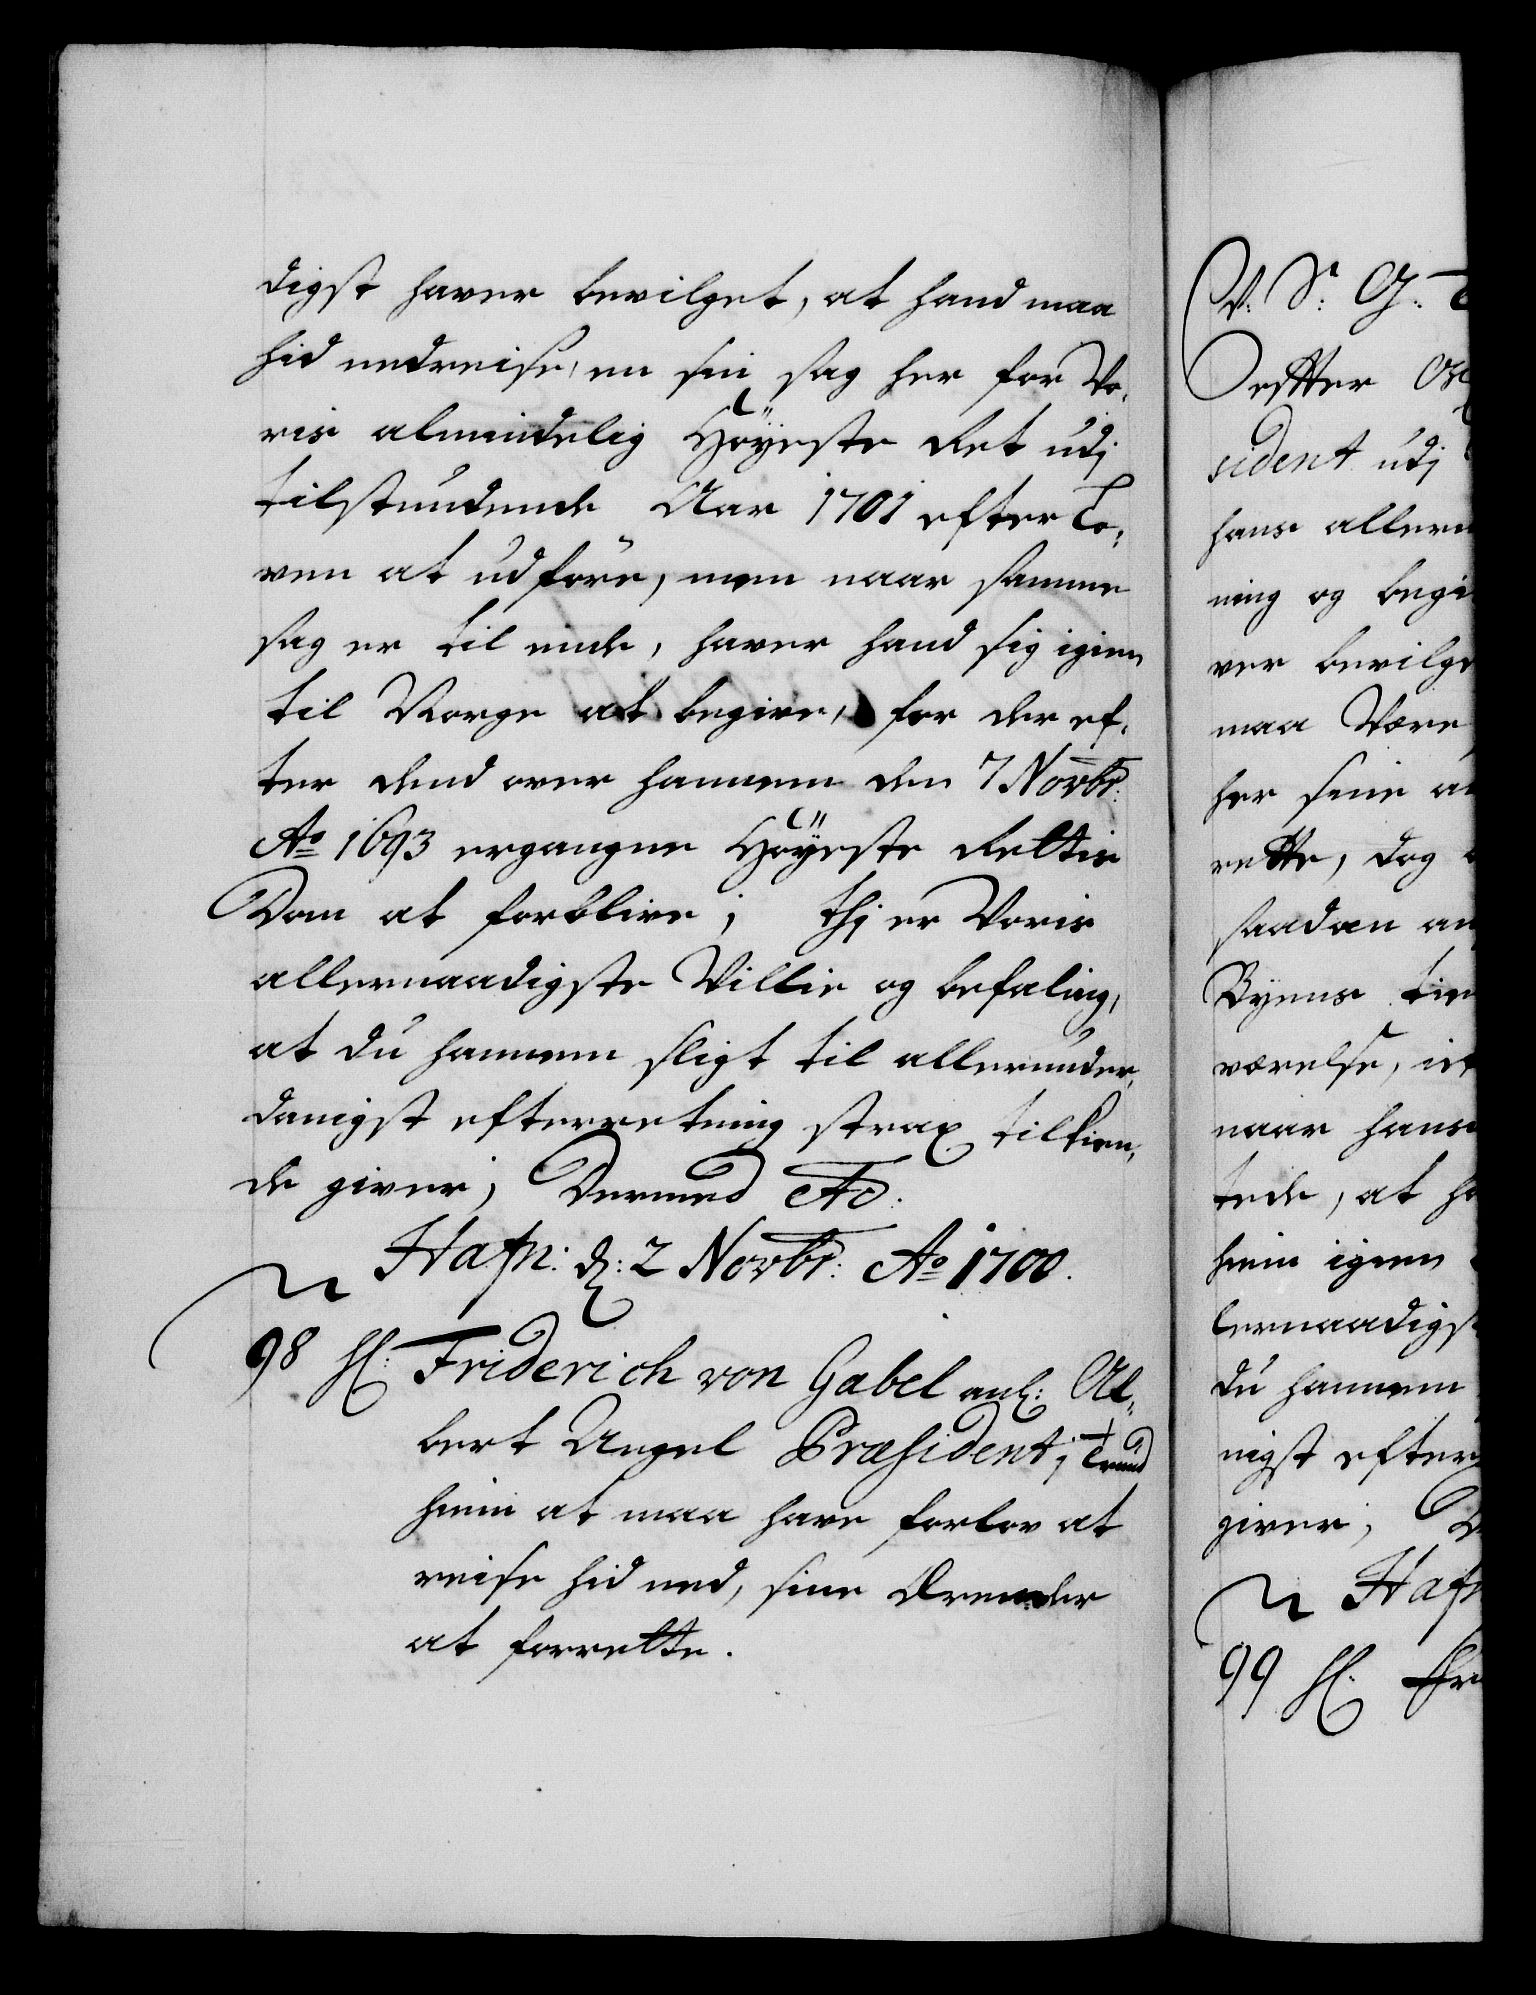 digst haver bevilget, at hand maa
hid nedreise, en sin sag her for Vo¬
ris almindelig Höyeste Ret udj
tilstundende Aar 1701 efter Lo¬
ven at udföre, men naar samme
sag er til ende, haver hand sig igien
til Norge at begive, for der ef¬
ter dend over hannem den 7 Novbr:
Ao 1693 ergangne Höyeste Rettis
Dom at forblive; thj er Voris
allernaadigste Villie og befaling,
at du hannem sligt til allerunder¬
danigst efterretning strax tilkien¬
de giver; Dermed Etc.
Hafn: d: 2 Novbr: Ao 1700.
98 H: Friderich von Gabel anl: Al¬
bert Angel Præsident j Trund
hiem at maa have forlov at
reise hid ned, sine Ærender
at forrette.
V: S: G: T
estter
sident udj
hans allern
ning og begi
ver bevilge
maa Være
her sine a
rette, dog
saadan an
Byens tie
værelse, i
naar hans
tede, at h
hiem igien
lernaadigs
du hannem
nigst efter
giver; D
Hafn
99 H: Fr